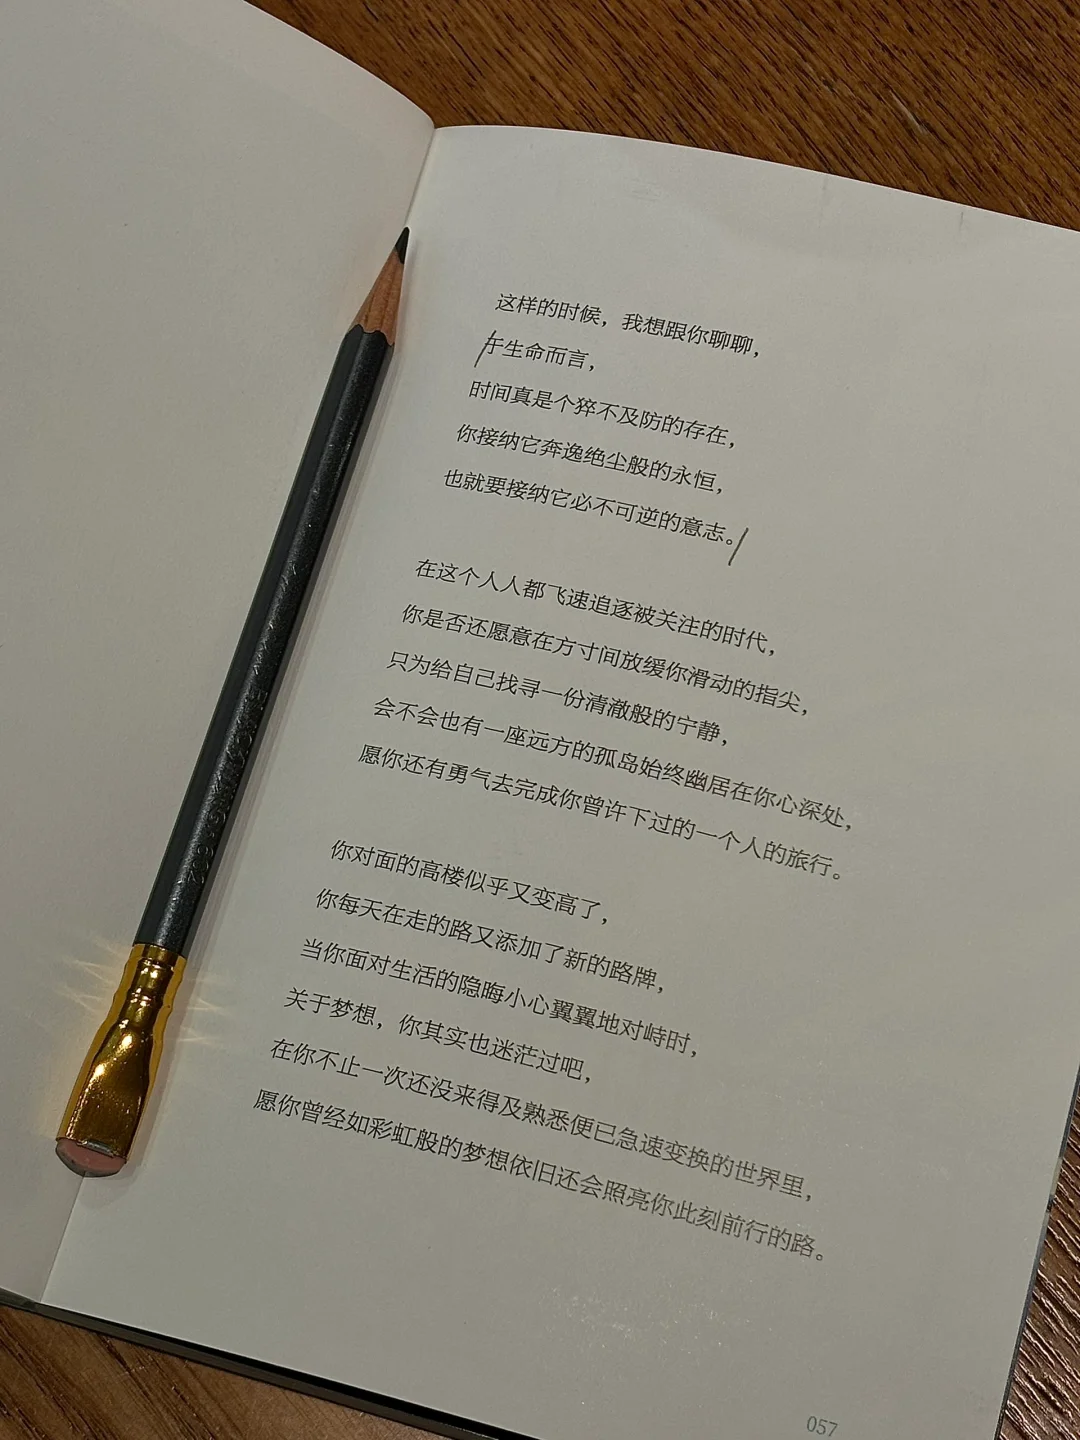 这样的时候，我想跟你聊聊，
于生命而言，
时间真是个猝不及防的存在，
你接纳它奔逸绝尘般的永恒，
也就要接纳它必不可逆的意志。
在这个人人都飞速追逐被关注的时代，
你是否还愿意在方寸间放缓你滑动的指尖，
只为给自己找寻一份清澈般的宁静，
会不会也有一座远方的孤岛始终幽居在你心深处，
愿你还有勇气去完成你曾许下过的一个人的旅行。
你对面的高楼似乎又变高了，
你每天在走的路又添加了新的路牌，
当你面对生活的隐晦小心翼翼地对峙时，
关于梦想，你其实也迷茫过吧，
在你不止一次还没来得及熟悉便已急速变换的世界里，
愿你曾经如彩虹般的梦想依旧还会照亮你此刻前行的路。
057